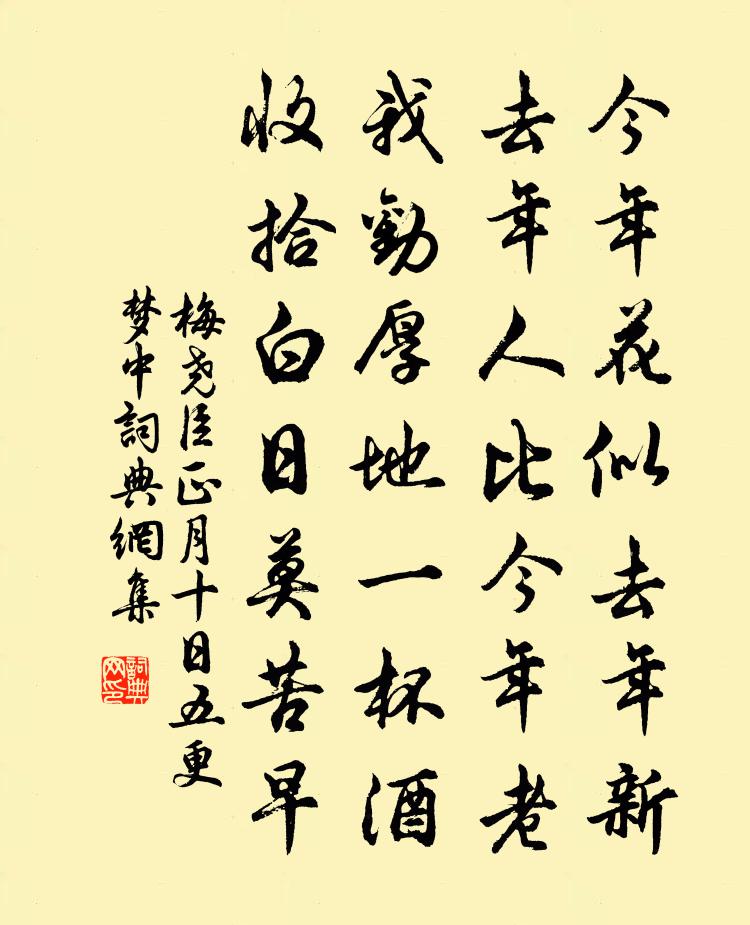 今年花似去年新
去年人比今年老
我勸厚地一杯酒
收拾白日莫苦早
梅堯臣正月十日五更
梦中詞典網集
詞典网印